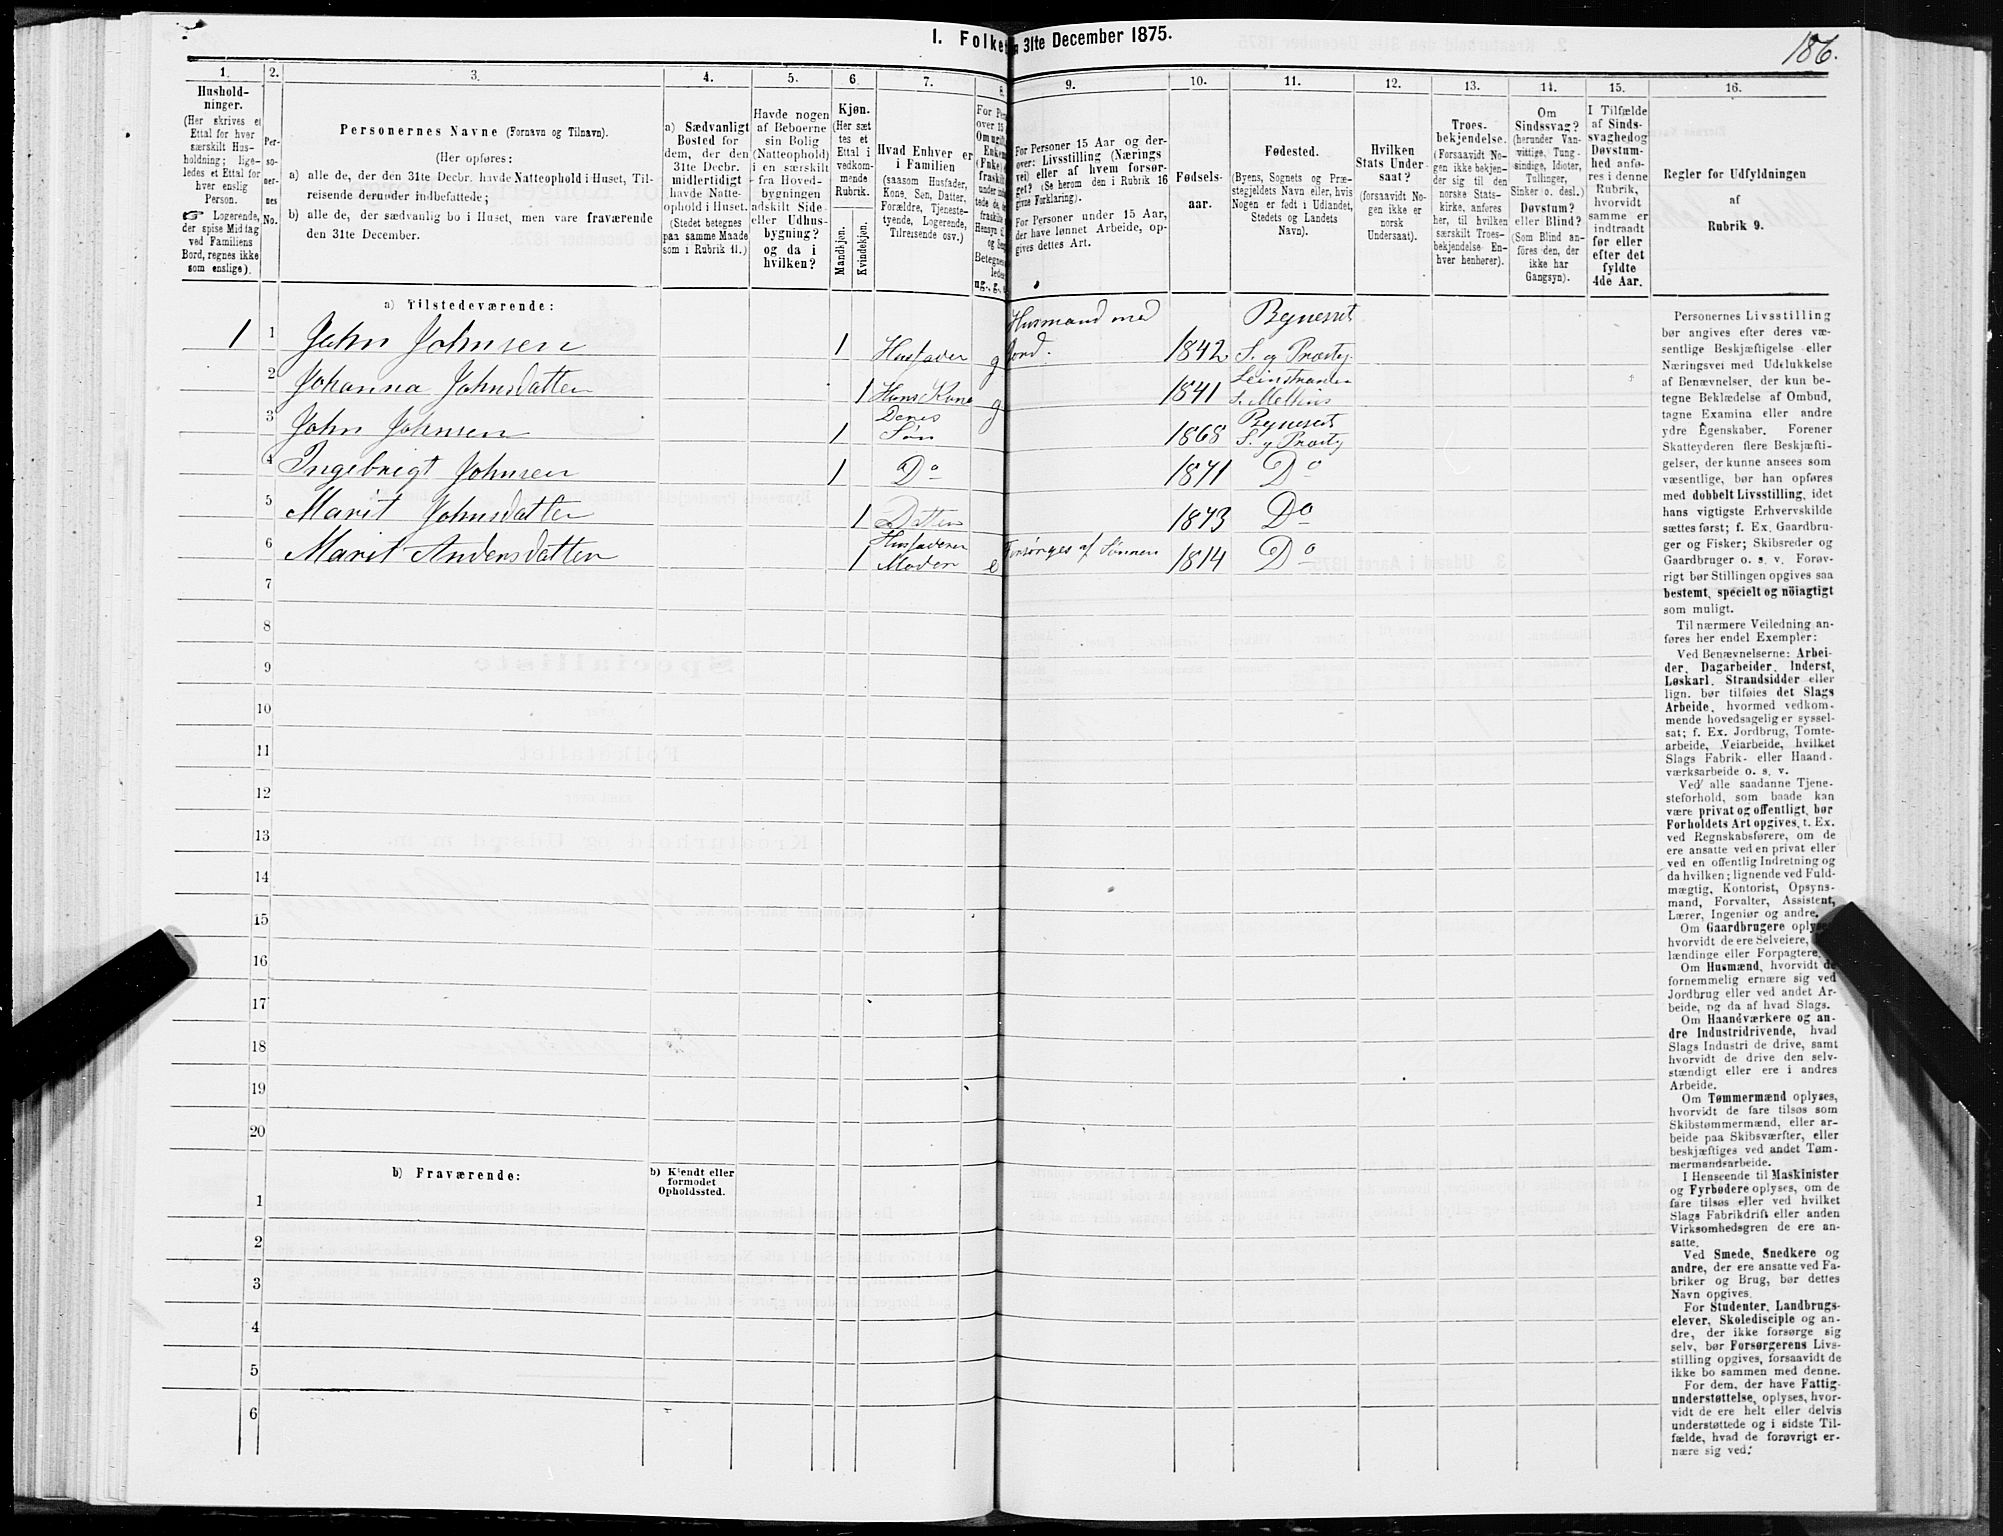 I. Folke
n 31te December 1875.
186.
1.
2.
3.
4.
5.
6
7.
8.
9.
10.
11.
12.
13.
14.
15.
16.
Hushold-
ninger.
(Her skrives et
Ettal for hver
særskilt Hus-
holdning; lige-
ledes et Ettal for
hver enslig
Person.
☞ Logerende,
der spise Middag
ved Familiens
Bord, regnes ikke
som enslige).
Per-
so-
ner-
nes
No.
Personernes Navne (Fornavn og Tilnavn).
(Her opføres:
a) alle de, der den 31te Decbr. havde Natteophold i Huset, Til-
reisende derunder indbefattede;
b) alle de, der sædvanlig bo i Huset, men vare fraværende
den 31te December.
a) Sædvanligt
Bosted for
dem, der den
31te Decbr.
midlertidigt
havde Natte-
ophold i Huset.
(Stedet betegnes
paa samme Maade
som i Rubrik 11.)
Havde nogen
af Beboerne
sin Bolig
(Natteophold)
i en særskilt
fra Hoved-
bygningen
adskilt Side-
eller Udhus-
bygning?
og da i
hvilken?
Kjøn.
(Her sæt-
tes et
Ettal i
vedkom-
mende
Rubrik.
Mandkjøn.
Kvindekjøn.
Hvad Enhver er
i Familien
(saasom Husfader,
Kone, Søn, Datter,
Forældre, Tjeneste-
tyende, Logerende,
Tilreisende osv.)
For Pers
over 15
Om ugift
Enkem
(Enke)
fraskilt
ug., g., e
For Personer 15 Aar og der-
over: Livsstilling (Nærings
vei) eller af hvem forsør-
get? (Se herom den i Rubrik 16
givne Forklaring).
For Personer under 15 Aar,
der have lønnet Arbeide, op-
gives dettes Art.
Fødsels-
aar.
Fødested.
(Byens, Sognets og Præ-
stegjeldets Navn eller, hvis
Nogen er født i Udlandet,
Stedets og Landets
Navn).
Hvilken
Stats Under-
saat?
(forsaavidt No-
gen ikke er
norsk
Undersaat).
Troes-
bekjendelse.
(Forsaavidt No-
gen ikke bekjen-
der sig til den
norske Stats-
kirke, anføres
her, til hvilken
særskilt Troes-
bekjendelse En-
hver henhører).
Om
Sindssvag?
(herunder Van-
vittige, Tung-
sindige, Idioter,
Tullinger,
Sinker o. desl.)
Døvstum?
eller Blind?
(Som Blind an-
føres den, der
ikke har
Gangsyn).
I Tilfælde
af Sinds-
svaghed og
Døvstum-
hed anfø-
res i denne
Rubrik,
hvorvidt
samme er
indtraadt
før eller
efter det
fyldte
4de Aar.
Regler for Udfyldningen
af
Rubrik 9.
a) Tilstedeværende:
1 1 John Johnsen 1 Husfader g Husmand med Jord. 1842 Bynesset S. og Præstg.
2 Johanna Johnsdatter 1 Hans Kone g 1841 Leinstranden S. Melhus
3 John Johnsen 1 Deres Søn 1868 Bynesset S. og Præstg
4 Ingebrigt Johnsen 1 Do 1871 Do
5 Marit Johnsdatter 1 Datter 1873 Do
6 Marit Andersdatter 1 Husfaderen Moder e Forsørges af Sønnen 1814 Do
7
8
9
10
11
12
13
14
15
16
17
18
19
20
b) Fraværende:
b) Kjendt eller
formodet
Opholdssted.
1
2
3
4
5
6
Personernes Livsstilling
bør angives efter deres væ-
sentlige Beskjæftigelse eller
Næringsvei med Udelukkelse
af Benævnelser, der kun be-
tegne Beklædelse af Ombud,
tagne Examina eller andre
ydre Egenskaber. Forener
Skatteyderen flere Beskjæfti-
gelser, der kunne ansees som
væsentlige, bør han opføres
med dobbelt Livsstilling, idet
hans vigtigste Erhvervskilde
sættes først; f. Ex. Gaardbru-
ger og Fisker; Skibsreder og
Gaardbruger o. s. v. Forøv-
rigt bør Stillingen opgives saa
bestemt, specielt og nöiagtigt
som muligt.
Til nærmere Veiledning an-
føres her endel Exempler:
Ved Benævnelserne: Arbei-
der, Dagarbeider, Inderst,
Løskarl, Strandsidder eller
lign. bør tilføies det Slags
Arbeide, hvormed vedkom-
mende hovedsagelig er syssel-
sat; f. Ex. Jordbrug, Tomte-
arbeide, Veiarbeide, hvilket
Slags Fabrik- eller Haand-
værksarbeide o. s. v.
Ved alle saadanne Tjene-
steforhold, som baade kan
være privat og offentligt, bør
Forholdets Art opgives, t. Ex.
ved Regnskabsførere, om de
ere ansatte ved en privat eller
ved en offentlig Indretning og
da hvilken; lignende ved Fuld-
mægtig, Kontorist, Opsyns-
mand, Forvalter, Assistent,
Lærer, Ingeniør og andre.
Om Gaardbrugere oplyse
hvorvidt de ere Selveiere,
lændinge eller Forpagtere,
Om Husmænd, hvorvidt de
fornemmelig ernære sig ved
Jordbrug eller ved andet Ar-
beide, og da af hvad Slags.
Om Haandværkere og an-
dre Industridrivende, hvad
Slags Industri de drive, samt
hvorvidt de drive den selv-
stændigt eller ere i andres
Arbeide.
Om Tømmermænd oplyses,
hvorvidt de fare tilsøs som
Skibstømmermænd, eller ar-
beide paa Skibsværfter, eller
beskjæftiges ved andet Tøm-
mermandsarbeide.
I Henseende til Maskinister
og Fyrbødere oplyses, om de
fare tilsøs eller ved hvilket
Slags Fabrikdrift eller anden
Virksomhedsgren de ere an-
satte.
Ved Smede, Snedkere og
andre, der ere ansatte ved Fa-
briker og Brug, bør dettes
Navn opgives.
For Studenter, Landbrugs-
elever, Skoledisciple og an-
dre, der ikke forsørge sig
selv, bør Forsørgerens Livs-
stilling opgives, forsaavidt de
ikke bo sammen med denne.
For dem, der have Fattig-
understøttelse, oplyses, hvor-
vidt de ere helt eller delvis
understøttede og i sidste Til-
fælde, hvad de forøvrigt er-
nære sig ved.